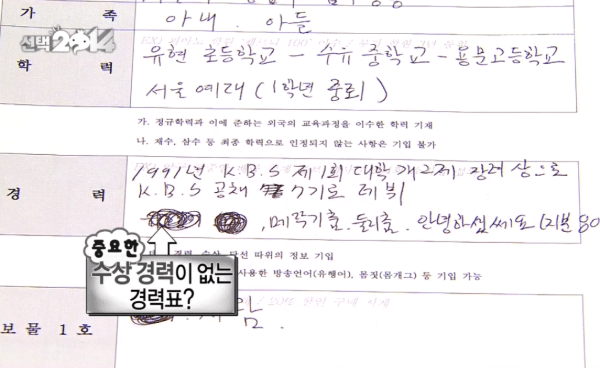 가 족
아내. 아들
선택 2014
학 력
유현 초등학교 - 수유 중학교 - 용문고등학교
서울 예대 (1학년 중퇴)
가. 정규학력과 이에 준하는 외국의 교육과정을 이수한 학력 기재
나. 재수, 삼수 등 최종 학력으로 인정되지 않는 사항은 기입 불가
경 력
1991년 K.B.S 제1회 대학개그제 장려상으로
K.B.S 공채 7기로 데뷔
, 메뚜기춤. 둘리춤. 안녕하쉽쎄요 (지분 80
경력, 수상, 당선 따위의 정보 기입
사용한 방송언어(유행어), 몸짓(몸개그) 등 기입 가능
중요한
수상 경력이 없는
경력표?
보물 1호